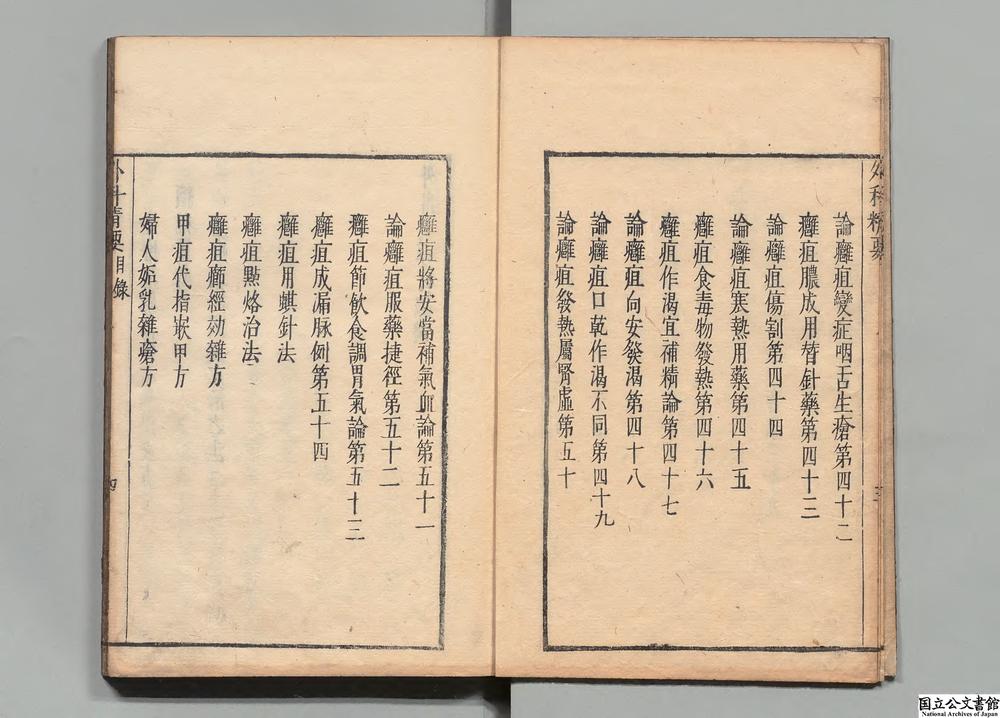 外科精要
論癰疽變症咽舌生瘡第四十二
癰疽膿成用替針藥第四十三
論癰疽傷割第四十四
論癰疽寒熱用藥第四十五
癰疽食毒物發熱第四十六
癰疽作渴宜補精論第四十七
論癰疽向安發渴第四十八
論癰疽口乾作渴不同第四十九
論癰疽發熱屬腎虛第五十
癰疽將安當補氣血論第五十一
論癰疽服藥捷徑第五十二
癰疽節飲食調胃氣論第五十三
癰疽成漏脉例第五十四
癰疽用蜞針法
癰疽㸃烙治法
癰疽癤經効雜方
甲疽代指嵌甲方
婦人妬乳雜瘡方
外科精要目錄
四
国立公文書館
National Archives of Japan